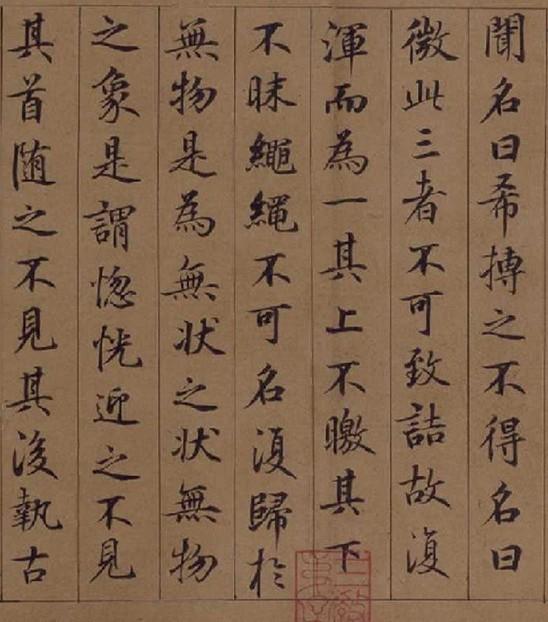 聞名曰希搏之不得名曰
微此三者不可致詰故復
渾而為一其上不曒其下
不昧繩繩不可名復歸於
無物是為無状之状無物
之象是謂惚恍迎之不見
其首随之不見其後執古